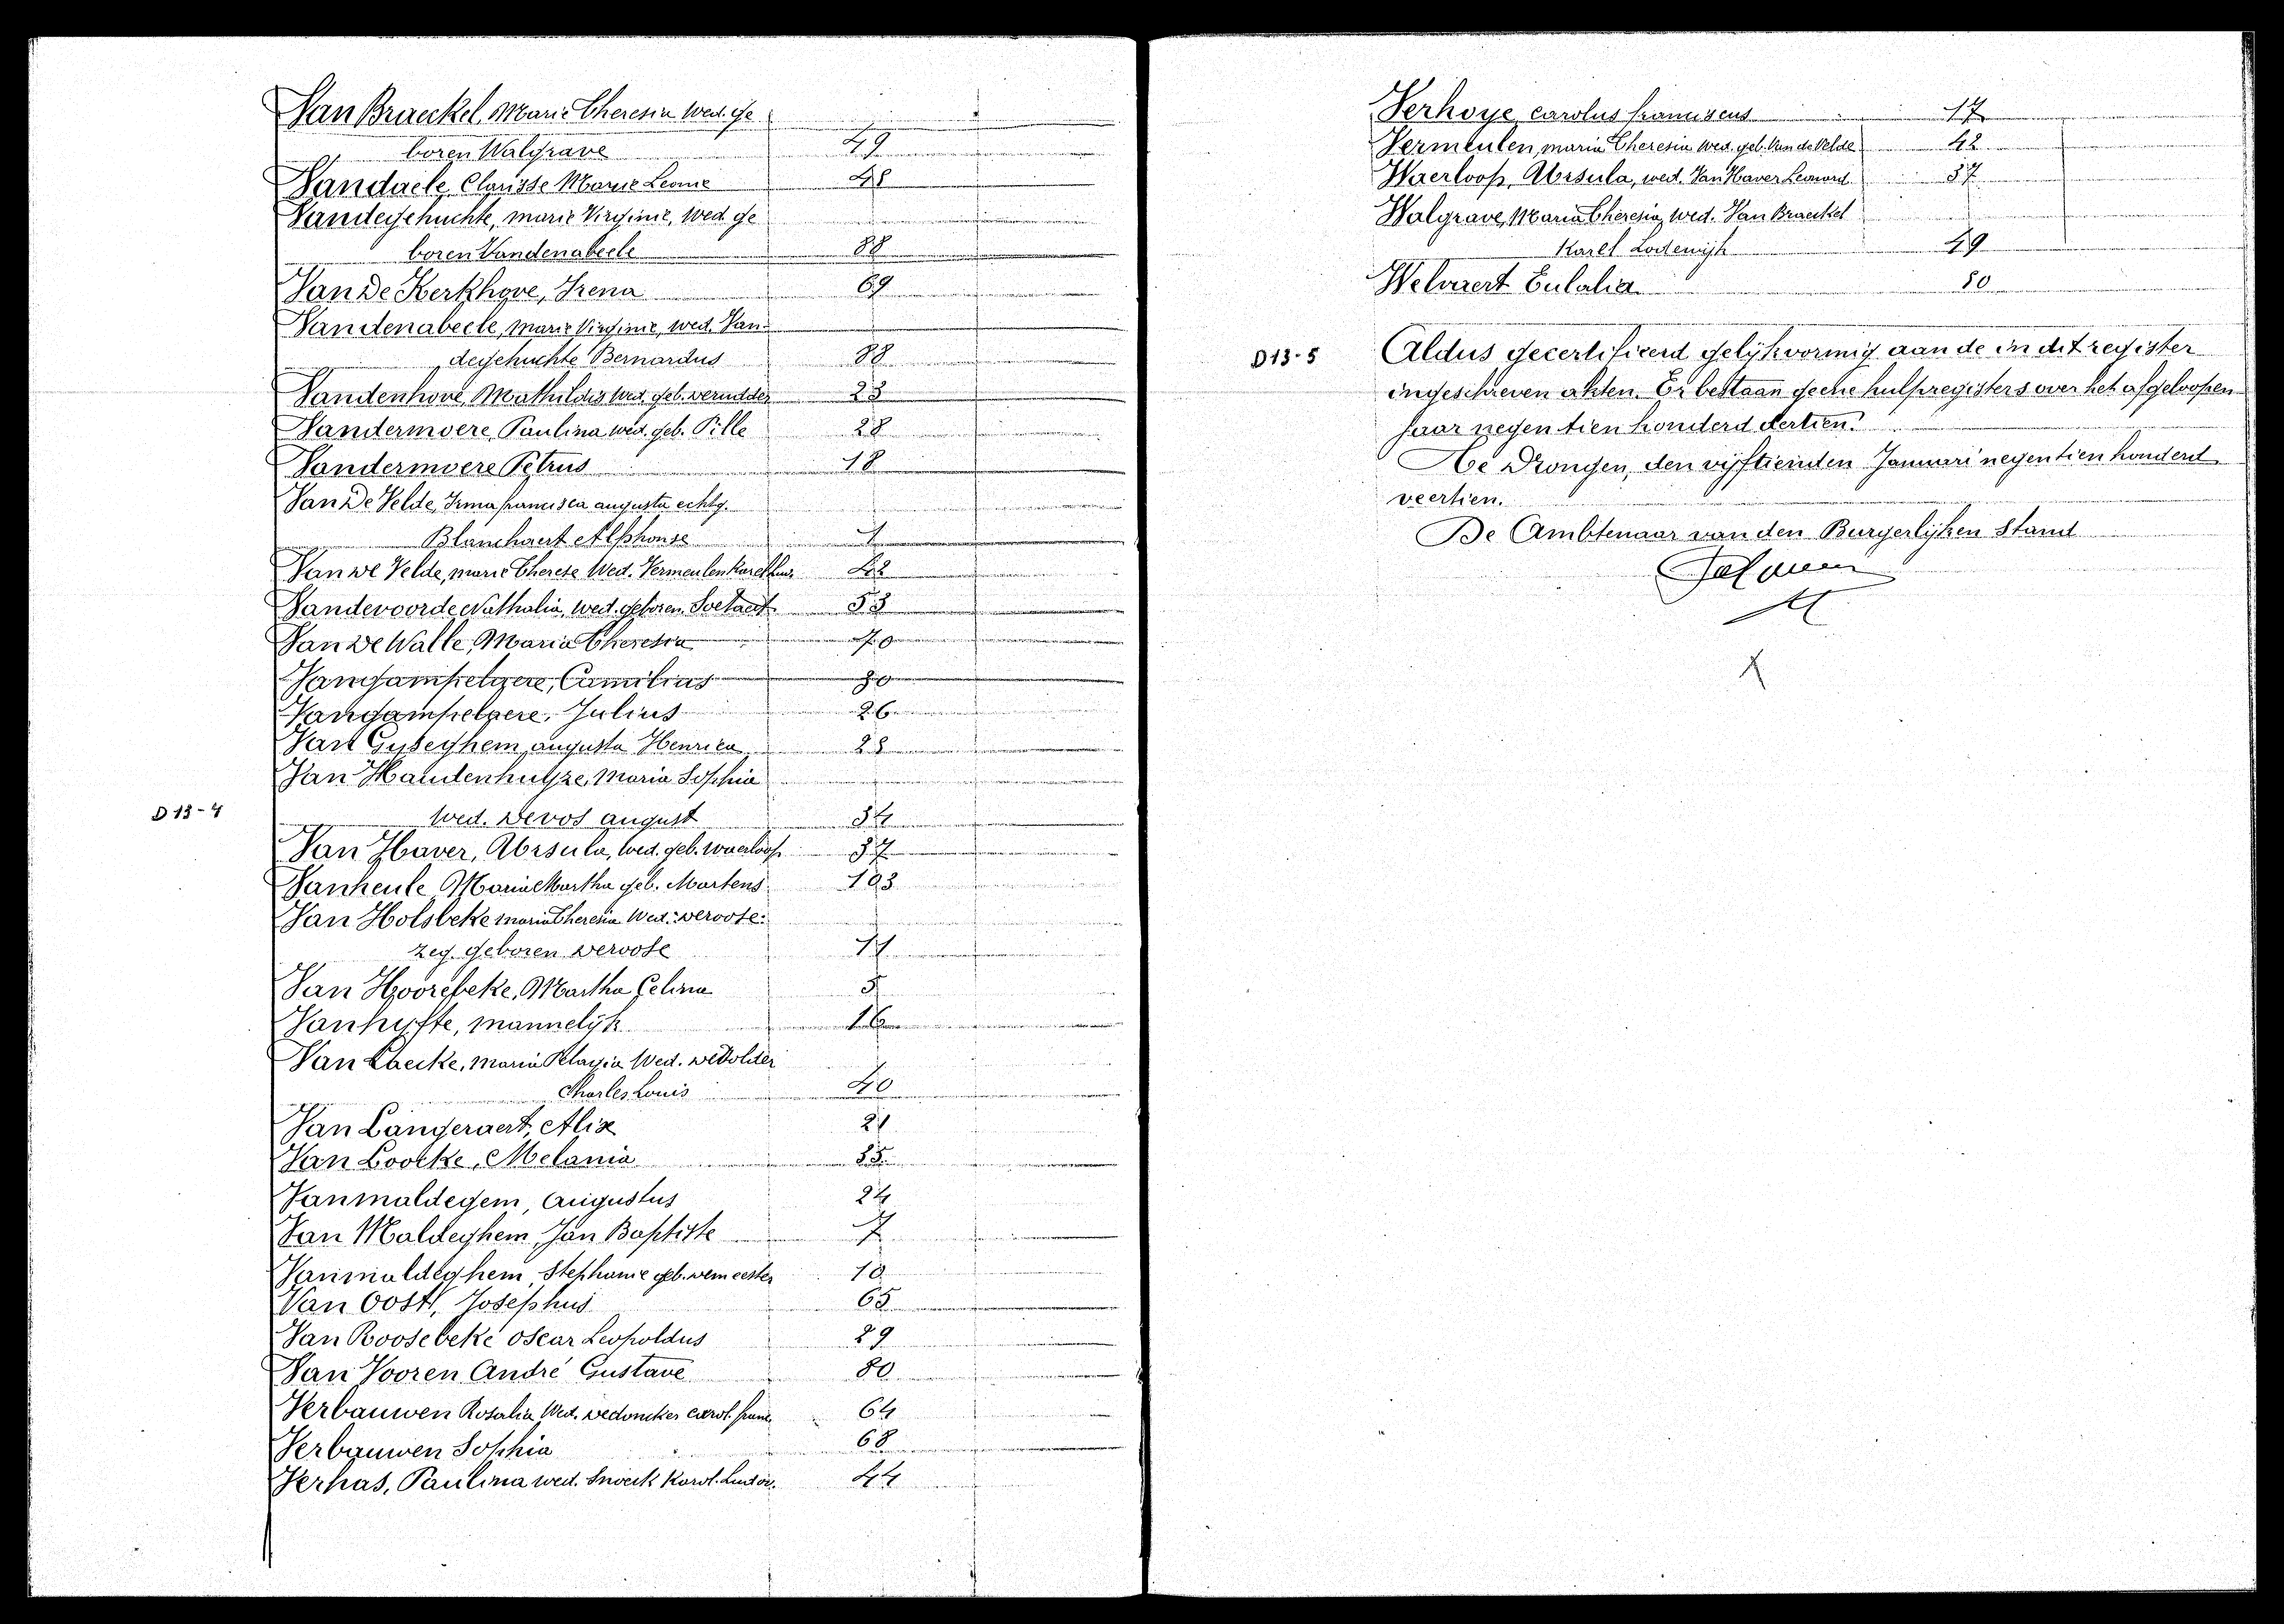 Van Braeckel, Marie Theresia Wed. ge
boren Walgrave 49
Vandaele, Clarisse Marie Leonie 48
Vandegehuchte, marie Virginie, Wed. ge
boren Vandenabeele 88
Van De Kerkhove, Irena 69
Vandenabeele, Marie Virginie, Wed. Van-
degehuchte Bernardus 88
Vandenhove, Mathildis Wed. geb. 23
Vandermoere, Paulina wed. geb. Pille 28
Vandermoere Petrus 18
Van De Velde, Irma francisca augusta echtg.
Blanchaert Alphonse 1
Van De Velde, marie Therese Wed. Vermeulen Karel 42
Vandevoorde Nathalia, Wed. geboren Soetaert 53
Van De Walle, Maria Theresia 70
Vangampelaere, Camilius 80
Vangampelaere, Julius 26
Van Gyseghem, augusta Henrica 28
Van Handenhuyze, Maria Sophia
D 13-4
Wed. Devos august 34
Van Haver, Ursula, Wed. geb. Waerloos 37
Vanheule, Maria Martha geb. Martens 103
Van Holsbeke maria Theresia Wed.
zeg. geboren Deroose 11
Van Hoorebeke, Martha Celina 5
Vanhyfte, mannelijk 16
Van Laecke, Maria Pelagia Wed. DePolder
Charles Louis 40
Van Langeraert, Alix 21
Van Loocke, Melania 35
Vanmaldegem, Augustus 24
Van Maldeghem, Jan Baptiste 7
Vanmaldeghem, Stephanie geb. Demeester 10
Van Oost, Josephus 65
Van Roosebeke Oscar Leopoldus 29
Van Vooren André Gustave 80
Verbauwen Rosalia Wed. Dedoncker Carol. franc. 64
Verbauwen Sophia 68
Verhas, Paulina wed. Snoeck Karol. Ludov. 44
Verhoye, carolus franciscus 17
Vermeulen, maria Theresia Wed. geb. Van de Velde 42
Waerloos, Ursula, wed. Van Haver Leonard 37
Walgrave, Maria Theresia, Wed. Van Braeckel
Karel Lodewijk 49
Welvaert Eulalia 80
D 13-5
Aldus gecertificeerd gelijkvormig aan de in dit register
ingeschreven akten. Er bestaan geene hulpregisters over het afgeloopen
jaar negentien honderd dertien.
Te Drongen, den vijftienden Januari negentien honderd
veertien.
De Ambtenaar van den Burgerlijken Stand